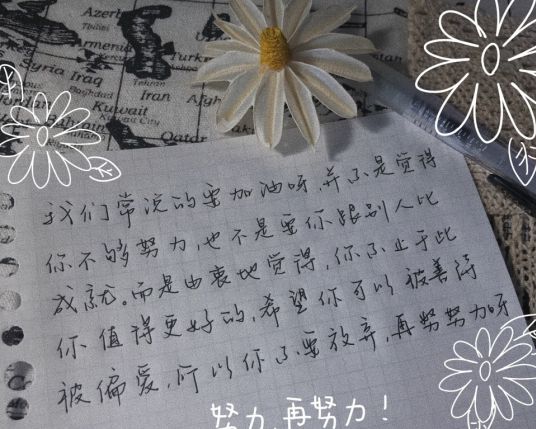 Azerbaijan
Armenia
Turk
Syria
Iraq
Tehran
Baghdad
Iran
Afgh
Jordan
Kuwait
Kuwait City
Qatar
我们常说的要加油呀,并不是觉得
你不够努力,也不是要你跟别人比
成就。而是由衷地觉得,你不止于此
你值得更好的,希望你可以被善待
被偏爱,所以你不要放弃,再努努力呀
努力,再努力!